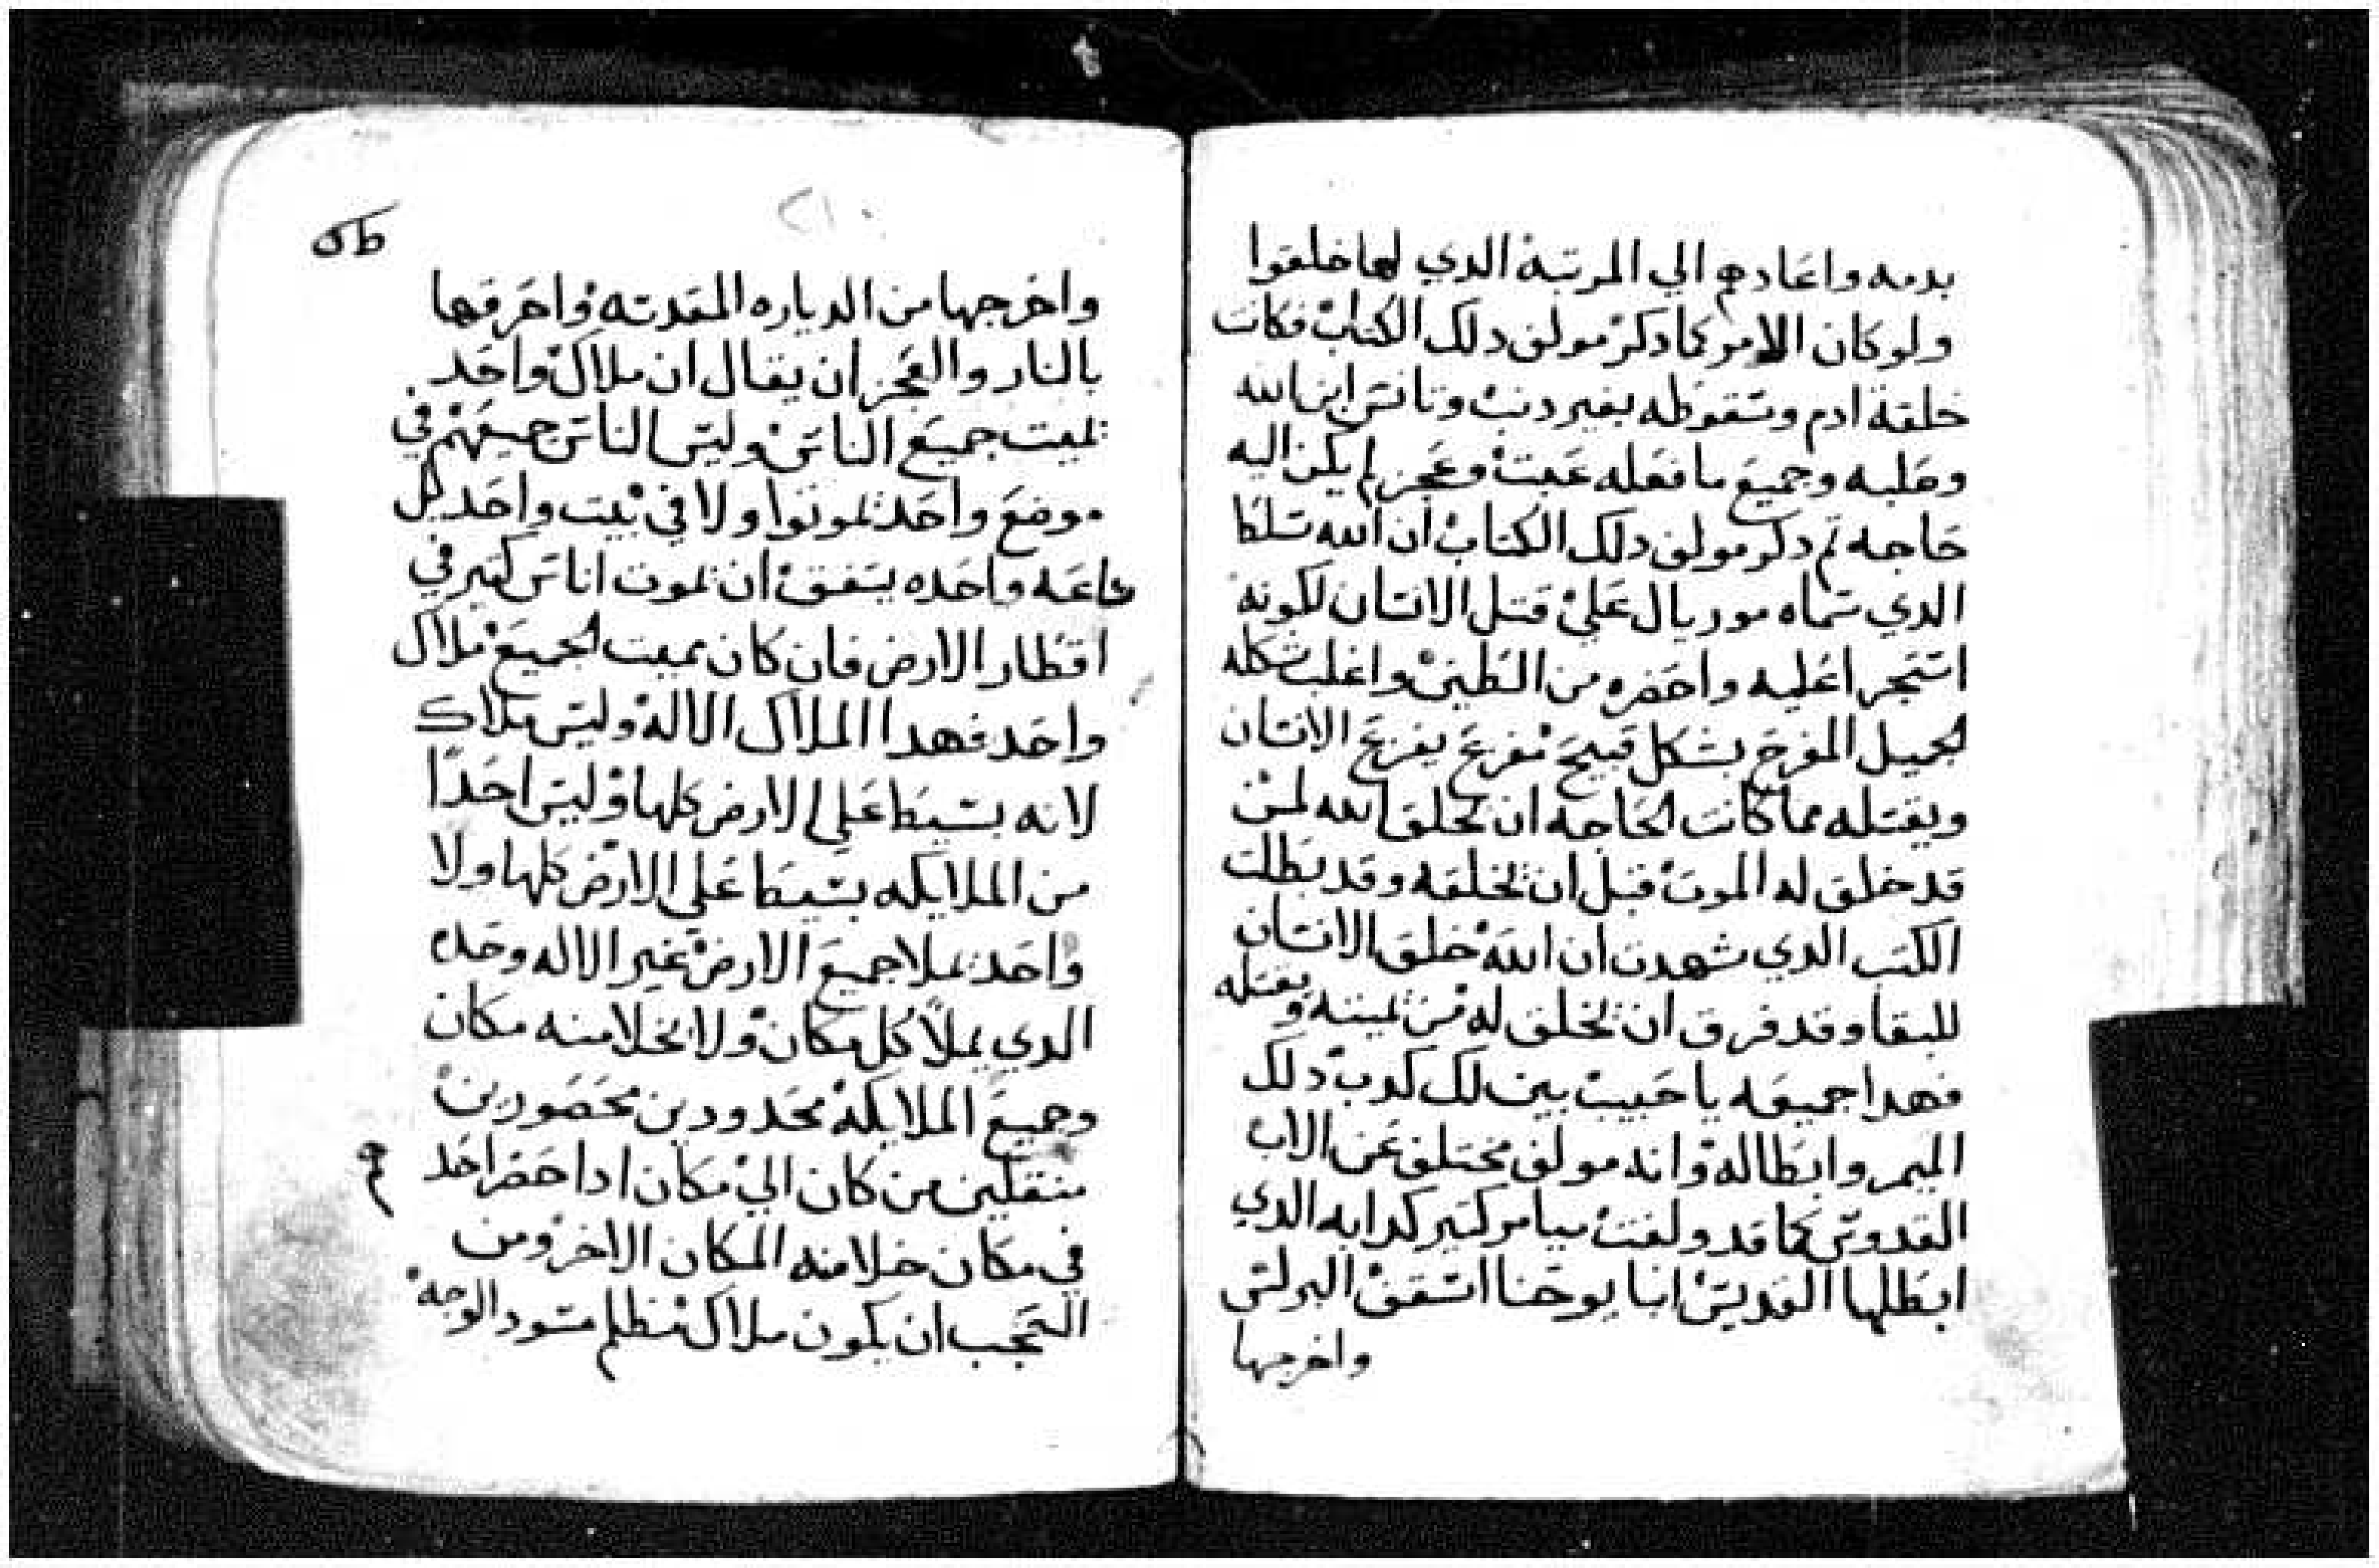 بدمه واعادهم الي المرتبة الدي لها خلقوا
ولو كان الامر كما دكر مولف دلك الكتاب فكانت
خلقة ادم وسقوطه بغير دنب وتانس ابن الله
وصلبه وجميع ما فعله عبت وعجز لم يكن اليه
حاجه تم دكر مولف دلك الكتاب ان الله سلط
الدي سماه موريال علي قتل الانسان لكونه
استجرا عليه واحضره من الطين واغلب شكله
الجميل المفرح بشكل قبيح مفزع يفزع الانسان
ويقتله مما كانت الحاجه ان يخلق الله لمن
قد خلق له الموت قبل ان يخلقه وقد بطلت
الكتب الدي شهدت ان الله خلق الانسان
للبقا وقد فرق ان يخلق له من يميته ويقتله
فهدا جميعه يا حبيب بين لك كدب دلك
الميمر وابطاله وانه مولف مختلق عن الاب
القدوس كما قد ولفت ميامر كتير كدابه الدي
ابطلها القديس انبا يوحنا اسقف البرلس
واخرجها
٢١٠
واخرجها من الدياره المقدسه واحرقها
بالنار والعجز ان يقال ان ملاك واحد
يميت جميع الناس وليس الناس جميعهم في
موضع واحد يموتوا ولا في بيت واحد بل
ساعه واحده يتفق ان يموت اناس كتير في
اقطار الارض فان كان يميت الجميع ملاك
واحد فهدا الملاك الاله وليس ملاك
لانه بسيط علي الارض كلها وليس احدا
من الملايكه بسيط علي الارض كلها ولا
واحد يملا جميع الارض غير الاله وحده
الدي يملا كل مكان ولا يخلا منه مكان
وجميع الملايكة محدودين محصورين
منتقلين من كان الي مكان ادا حضر احد
في مكان خلا منه المكان الاخر ومن
التعجب ان يكون ملاك مظلم مسود الوجه